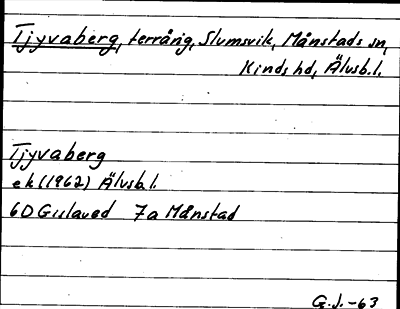 Tjyvaberg, terräng, Slumsvik, Månstads sn,
Kinds hd, Älvsb.l.
Tjyvaberg
ek (1962) Älvsb.l.
6D Gislaved 7a Månstad
G.J. -63